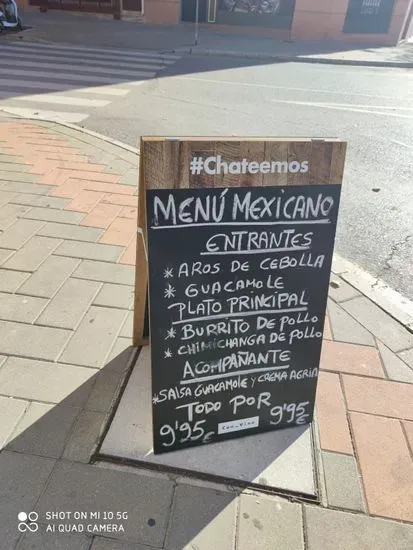 #Chateemos
MENÚ MEXICANO
ENTRANTES
* AROS DE CEBOLLA
* GUACAMOLE
PLATO PRINCIPAL
* BURRITO DE POLLO
* CHIMICHANGA DE POLLO
ACOMPAÑANTE
* SALSA GUACAMOLE Y CREMA AGRIA
TODO POR
9'95€ 9'95€
SHOT ON MI 10 5G
AI QUAD CAMERA